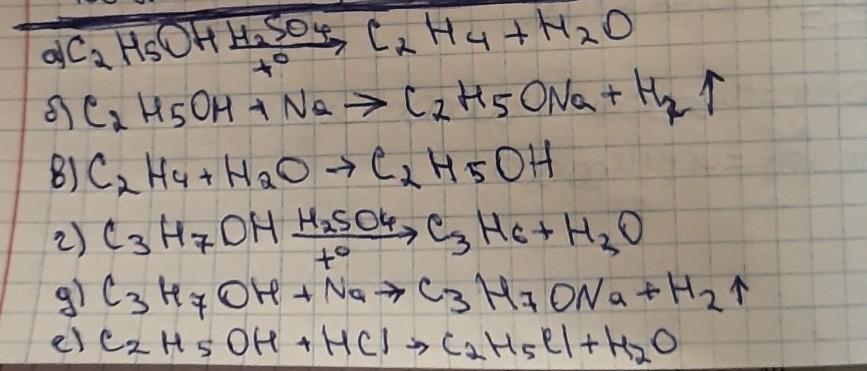 а) C2H5OH H2SO4 t° → C2H4 + H2O
б) C2H5OH + Na → C2H5ONa + H2 ↑
в) C2H4 + H2O → C2H5OH
г) C3H7OH H2SO4 t° → C3H6 + H2O
д) C3H7OH + Na → C3H7ONa + H2 ↑
е) C2H5OH + HCl → C2H5Cl + H2O